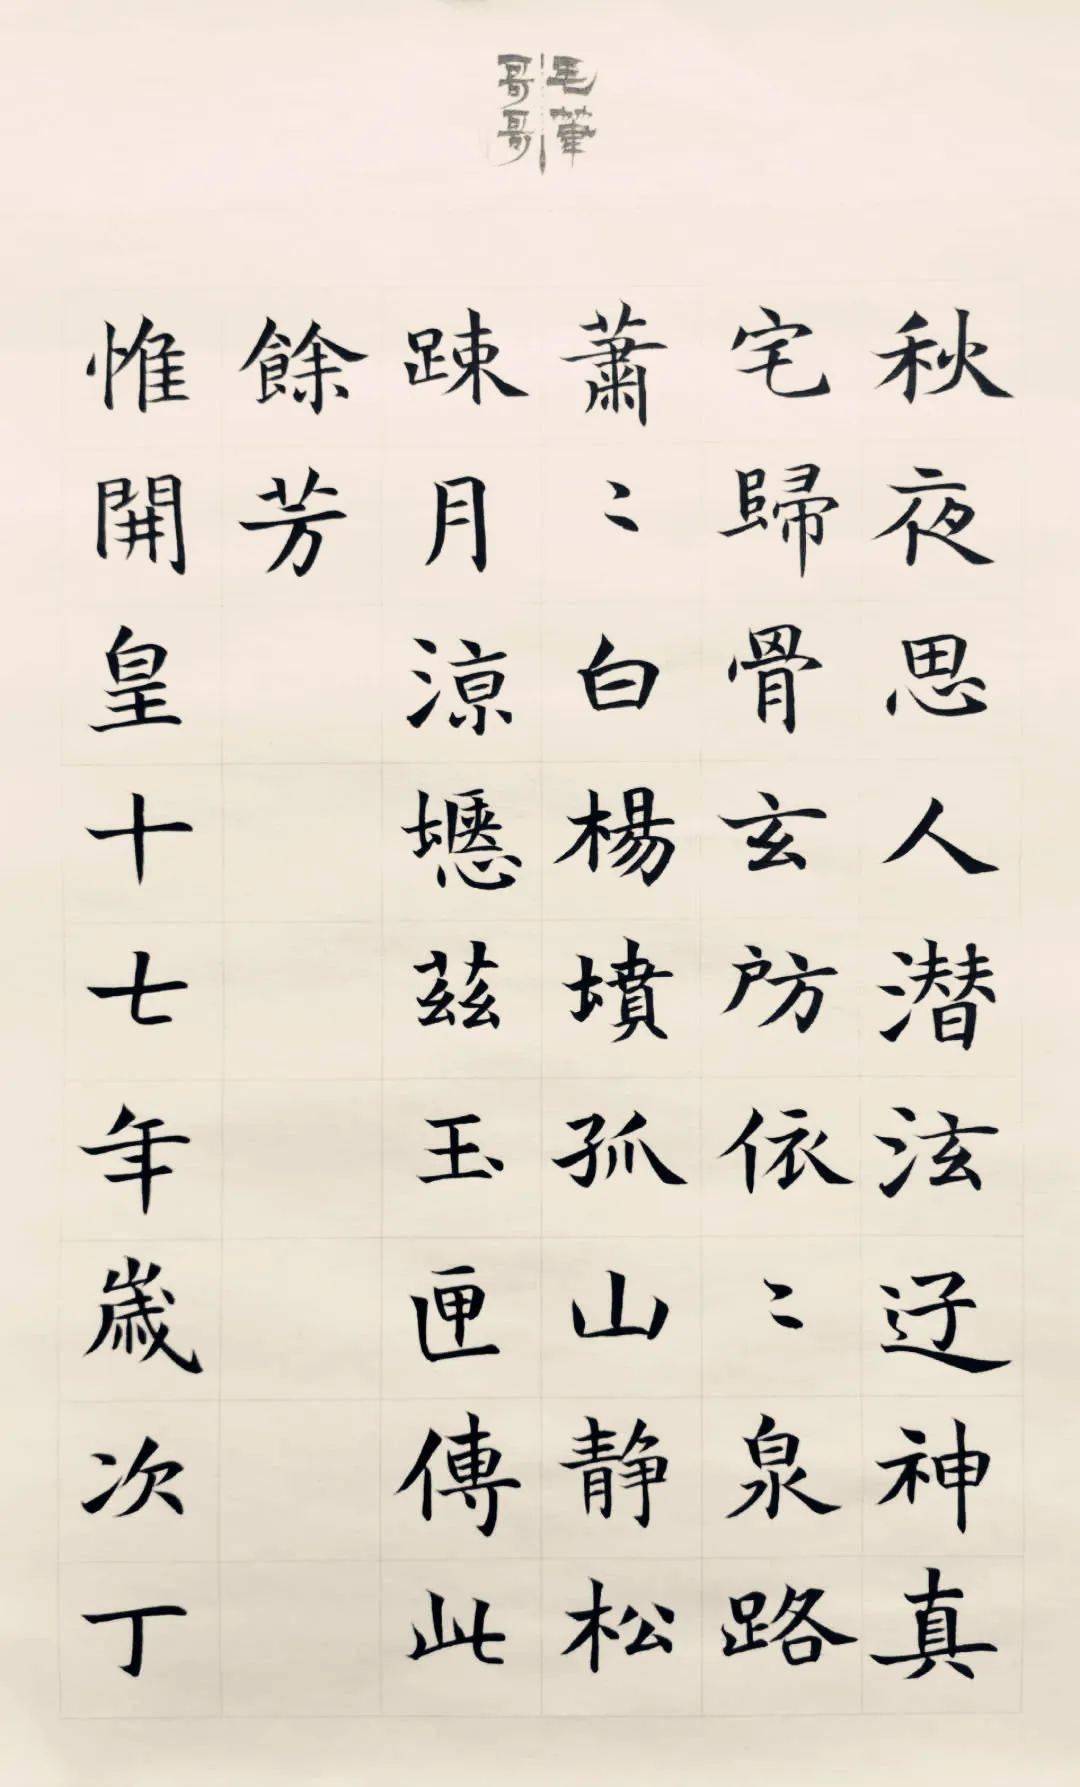 毛筆
哥哥
秋夜思人潜泫迂神真
宅歸骨玄房依〻泉路
蕭〻白楊墳孤山静松
踈月涼壥茲玉匣傳此
餘芳
惟開皇十七年歲次丁